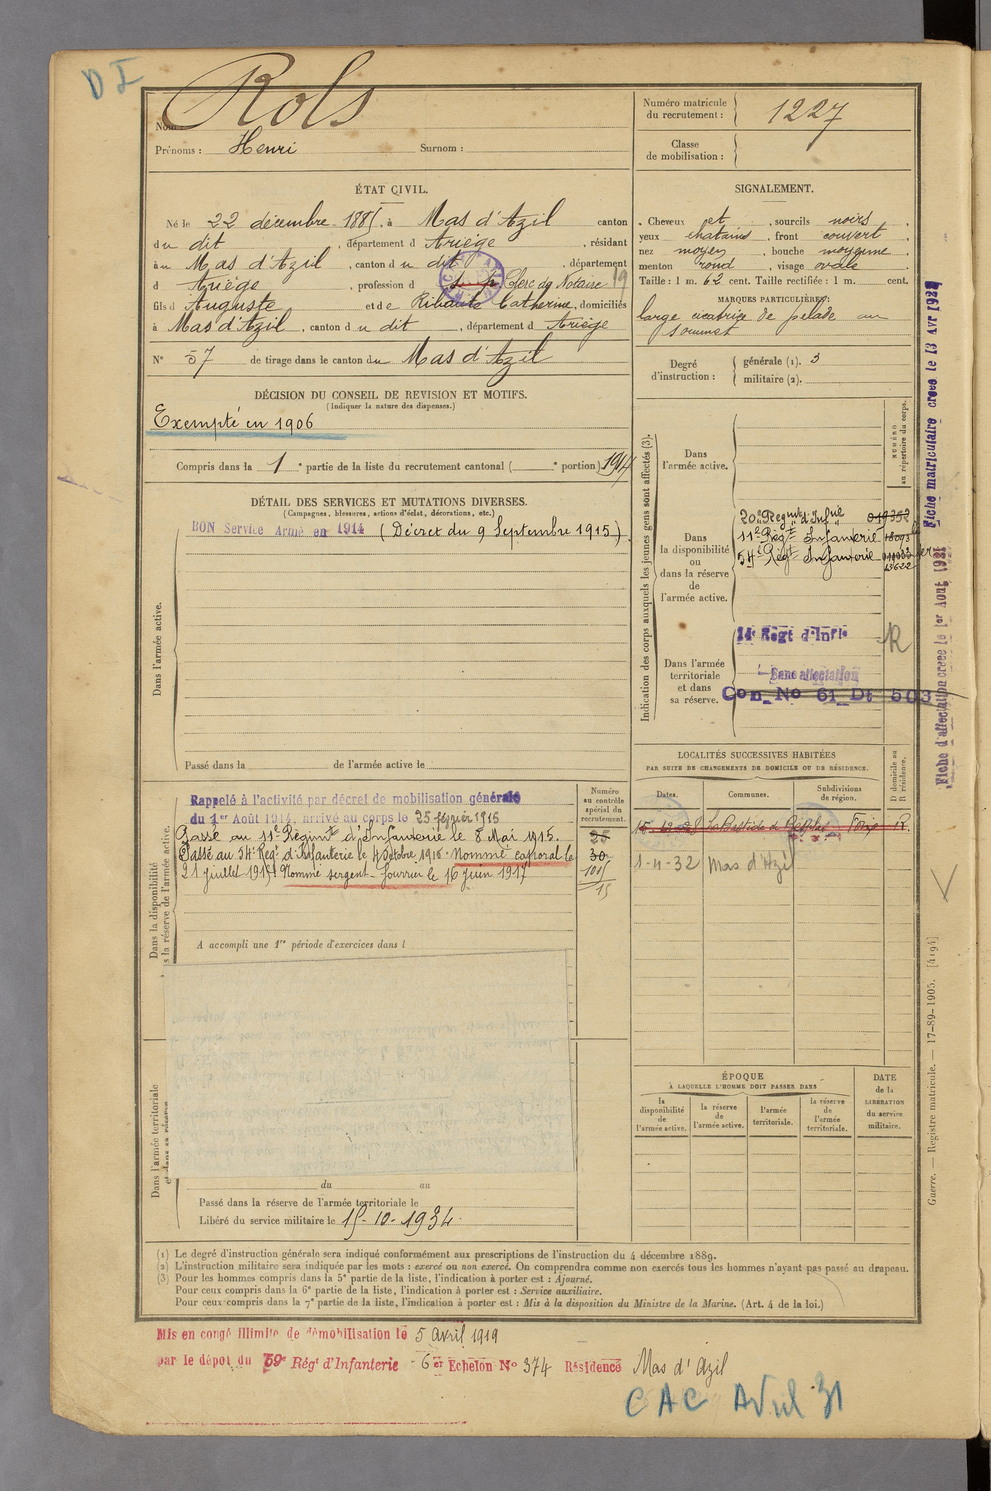 DI
Nom : Rols
Prénoms : Henri Surnom :
Numéro matricule du recrutement : 1227
Classe de mobilisation :
ÉTAT CIVIL.
Né le 22 décembre 1885, à Mas d'Azil canton
du dit, département d Ariège, résidant
au Mas d'Azil, canton du dit, département
d Ariège, profession d Clerc de Notaire 19
fils d Auguste et de Ribaute Catherine, domiciliés
à Mas d'Azil, canton du dit, département d Ariège
N° 57 de tirage dans le canton du Mas d'Azil
SIGNALEMENT.
Cheveux et, sourcils noirs,
yeux chatains, front couvert,
nez moyen, bouche moyenne,
menton rond, visage ovale
Taille : 1 m. 62 cent. Taille rectifiée : 1 m. cent.
MARQUES PARTICULIÈRES :
large cicatrice de pelade au
sommet
Degré d'instruction : générale (1). 3
militaire (2).
DÉCISION DU CONSEIL DE REVISION ET MOTIFS.
(Indiquer la nature des dispenses.)
Exempté en 1906
Compris dans la 1e partie de la liste du recrutement cantonal ( e portion) 1914
DÉTAIL DES SERVICES ET MUTATIONS DIVERSES.
(Campagnes, blessures, actions d'éclat, décorations, etc.)
BON Service Armé en 1914 (Décret du 9 Septembre 1915).
Dans l'armée active.
Passé dans la de l'armée active le
Indication des corps auxquels les jeunes gens sont affectés (3).
NUMÉRO au répertoire du corps.
Dans l'armée active.
Dans la disponibilité ou dans la réserve de l'armée active.
20e Regmt d'Infrie 019352
11e Regt Infanterie 18093
54e Regt Infanterie
13622
Dans l'armée territoriale et dans sa réserve.
14e Régt d'Infie
R
Sans affectation
Con_No 61_Dt 503
Fiche matriculaire créée le 13 Avr 193
Fiche d'affectation créée le 1er Aout 1931
Dans la disponibilité
la réserve de l'armée active.
Rappelé à l'activité par décret de mobilisation générale
du 1er Août 1914, arrivé au corps le 25 février 1915
Passé au 11e Régimt d'Infanterie le 8 Mai 1915.
Passé au 54e Regt d'Infanterie le 4 Octobre 1916. Nommé caporal le
21 juillet 1917. Nommé sergent-fourrier le 16 juin 1917
A accompli une 1re période d'exercices dans l
Numéro au contrôle spécial du recrutement.
25
30
1015
15
LOCALITÉS SUCCESSIVES HABITÉES
PAR SUITE DE CHANGEMENTS DE DOMICILE OU DE RÉSIDENCE.
Dates. Communes. Subdivisions de région. D domicile ou R résidence.
La Bastide de Foix R.
1-4-32 Mas d'Azil
ÉPOQUE
À LAQUELLE L'HOMME DOIT PASSER DANS
la disponibilité de l'armée active.
la réserve de l'armée active.
l'armée territoriale.
la réserve de l'armée territoriale.
DATE de la LIBÉRATION du service militaire.
Dans l'armée territoriale
et dans sa réserve
du au
Passé dans la réserve de l'armée territoriale le
Libéré du service militaire le 15-10-1934.
(1) Le degré d'instruction générale sera indiqué conformément aux prescriptions de l'instruction du 4 décembre 1889.
(2) L'instruction militaire sera indiquée par les mots : exercé ou non exercé. On comprendra comme non exercés tous les hommes n'ayant pas passé au drapeau.
(3) Pour les hommes compris dans la 5e partie de la liste, l'indication à porter est : Ajourné.
Pour ceux compris dans la 6e partie de la liste, l'indication à porter est : Service auxiliaire.
Pour ceux compris dans la 7e partie de la liste, l'indication à porter est : Mis à la disposition du Ministre de la Marine. (Art. 4 de la loi.)
Guerre. — Registre matricule. — 17-89-1905. [4194]
Mis en congé illimité de démobilisation le 5 avril 1919
par le dépot du 59e Régt d'Infanterie - 6er Echelon No 374 Résidence Mas d'Azil
CAC Avril 31